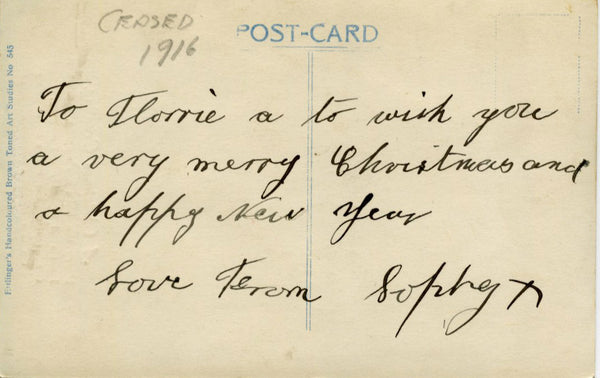 CEASED
1916
POST-CARD
To Florrie a to wish you
a very merry Christmas and
a happy New Year
Love From Sophy x
Ettlinger's Handcoloured Brown Toned Art Studies No 545